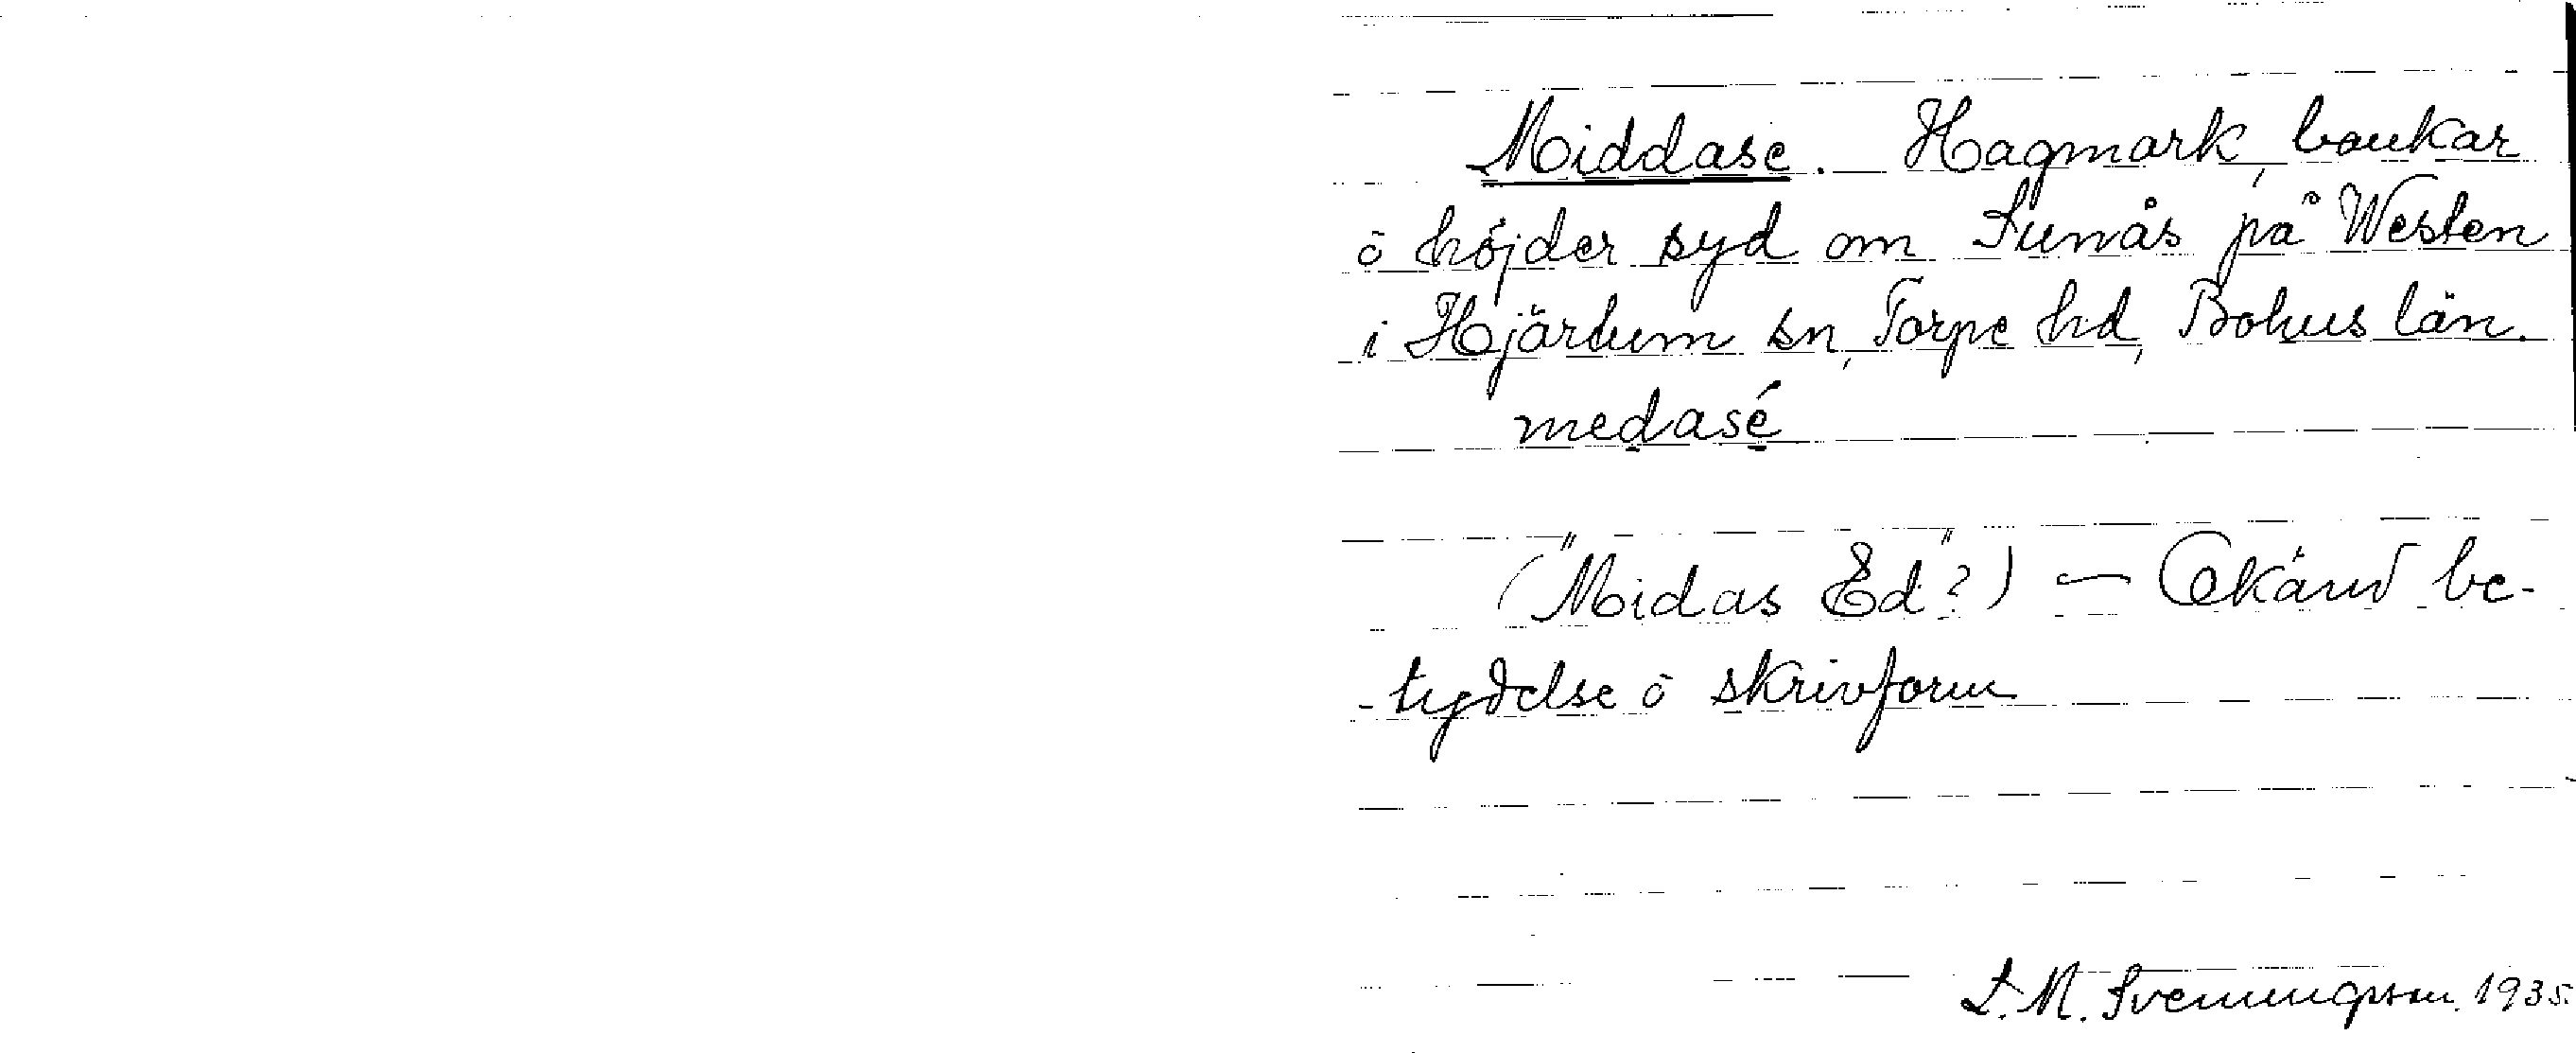 Middase. Hagmark, baukar
ō höjder syd om Sunås på Westen
i Hjärtum sn, Torpe hd, Bohus län.
medasé
("Midas Ed"?) — Okänd be-
-tydelse ō skrivform
L. M. Svenungsson. 1935.